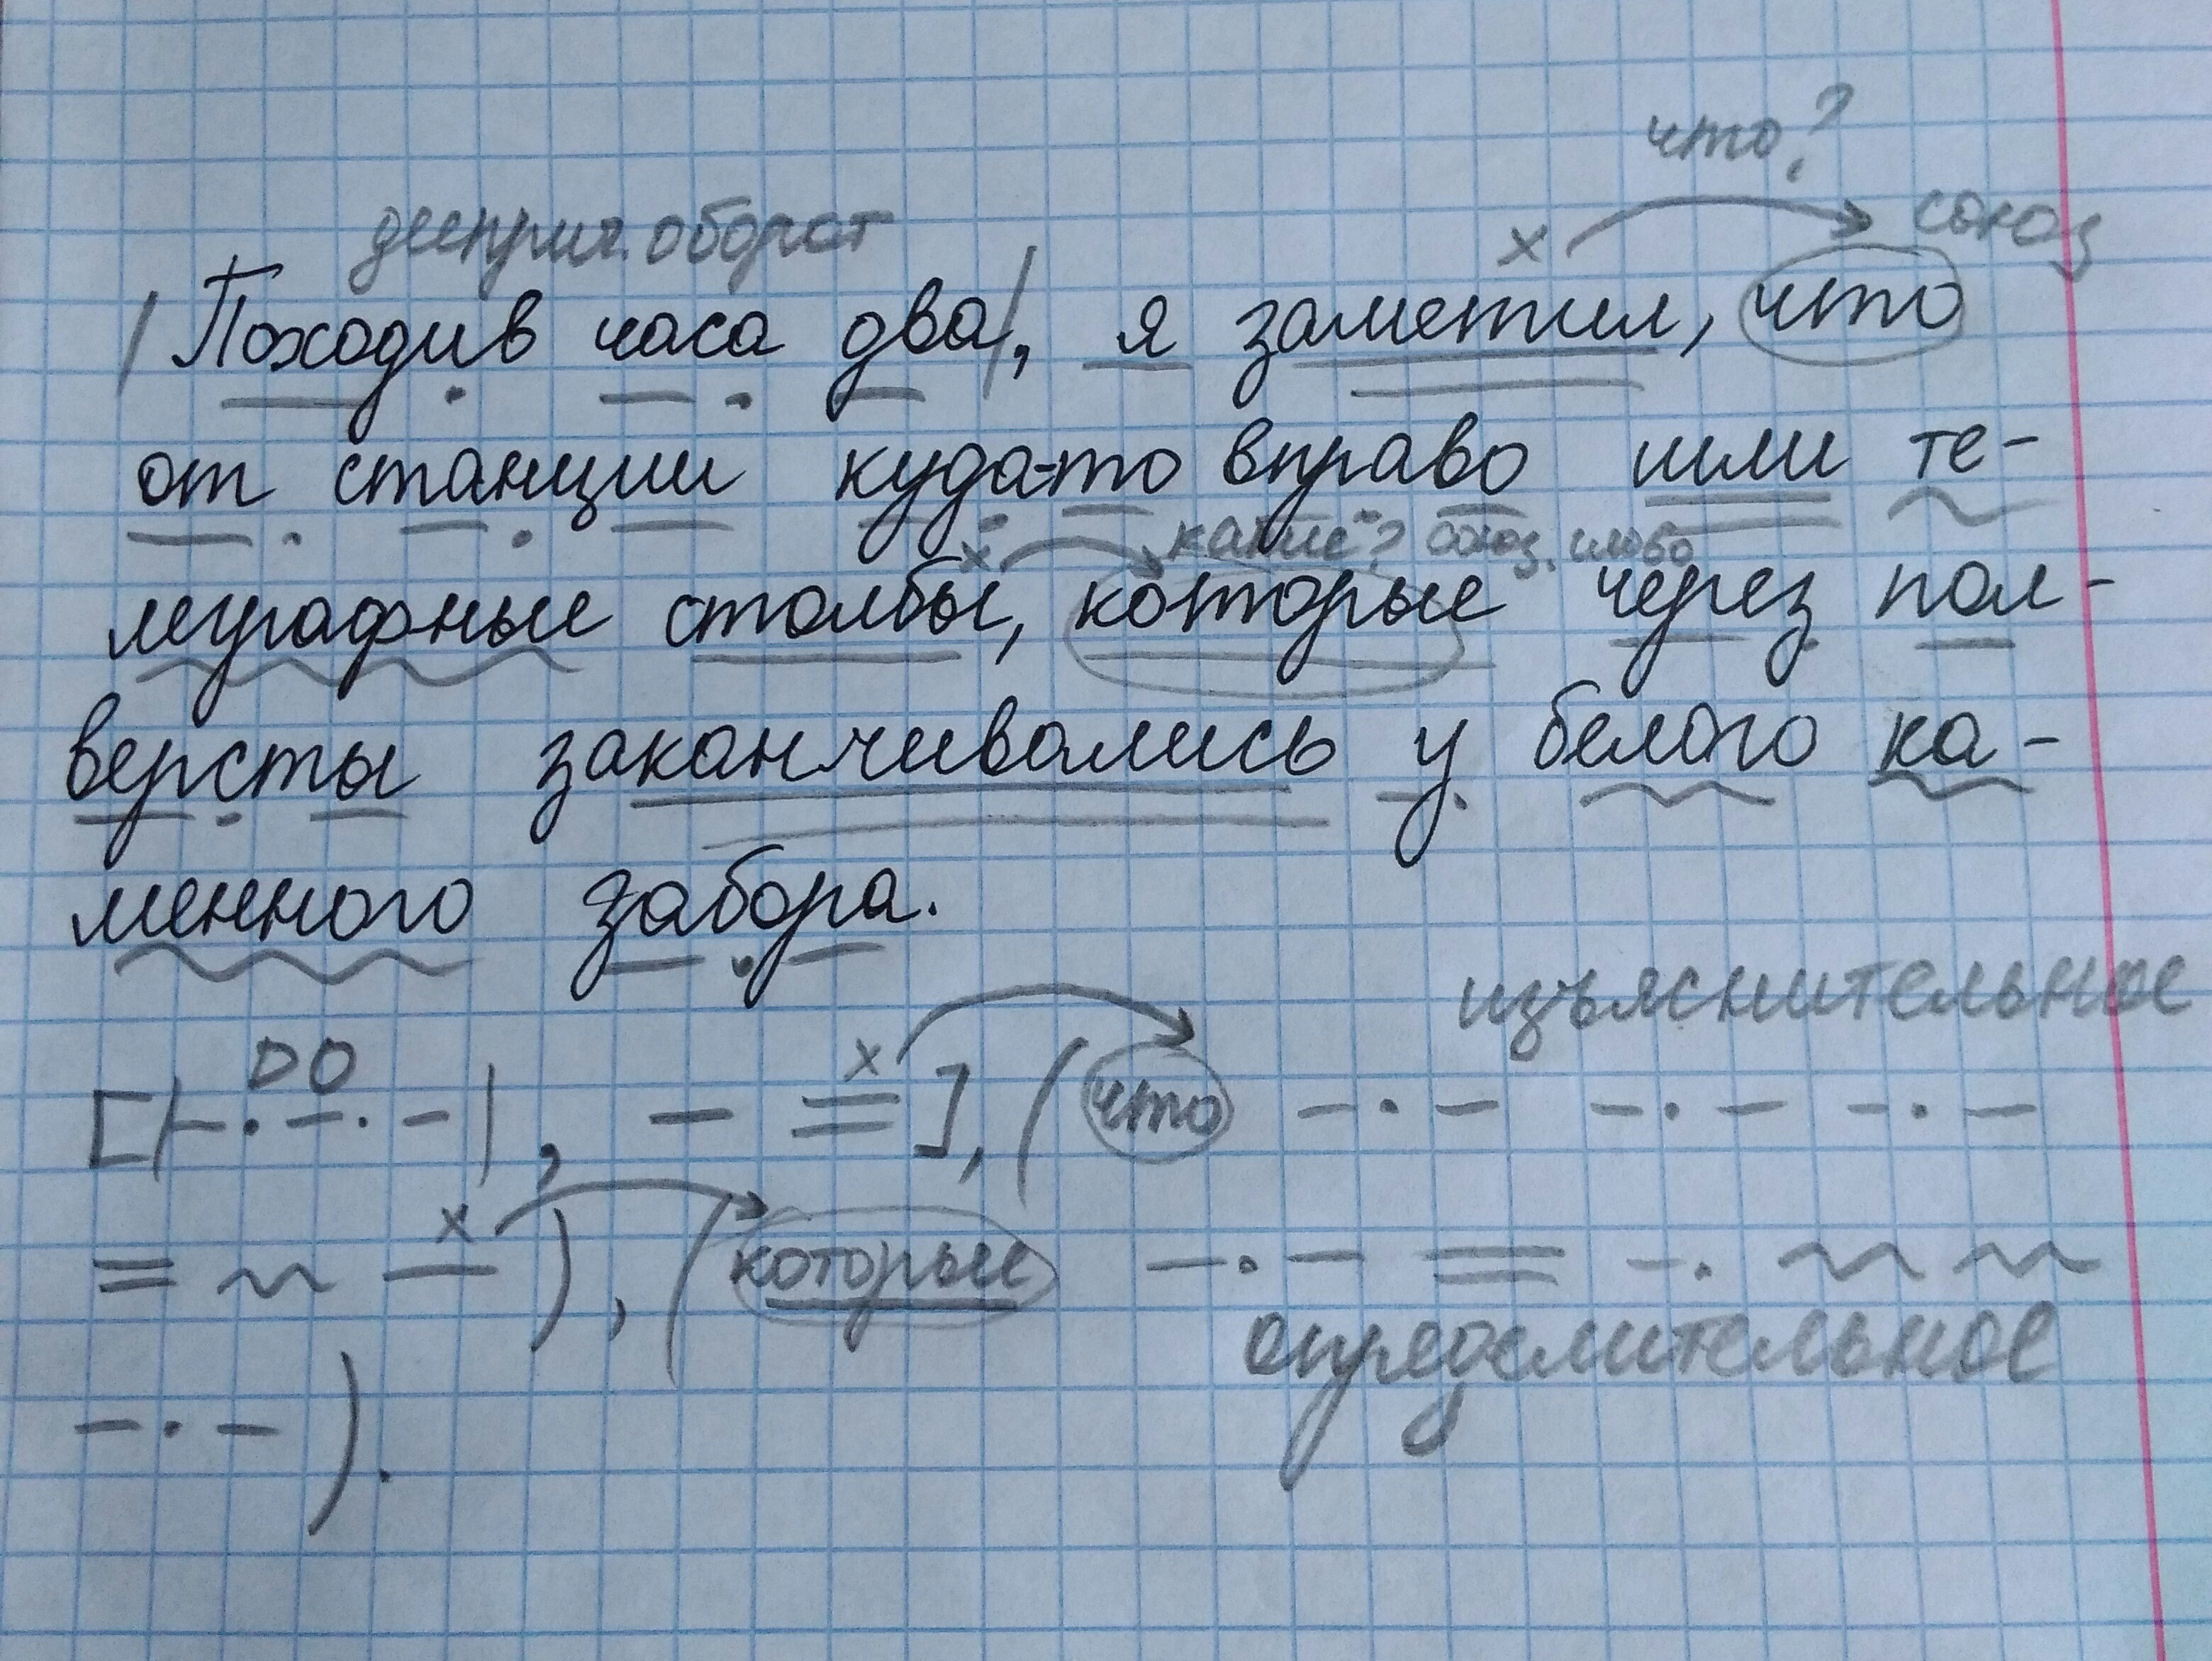 что?
дееприч. оборот
х союз
|Походив часа два|, я заметил, что
от станции куда-то вправо шли те-
х какие? союз. слово
леграфные столбы, которые через пол-
версты заканчивались у белого ка-
менного забора.
изъяснительное
ДО х
[|-.-.-|, - =], (что -.- -.- -.-
х
= ~ -), (которые -.- = -. ~ ~
определительное
-.-).